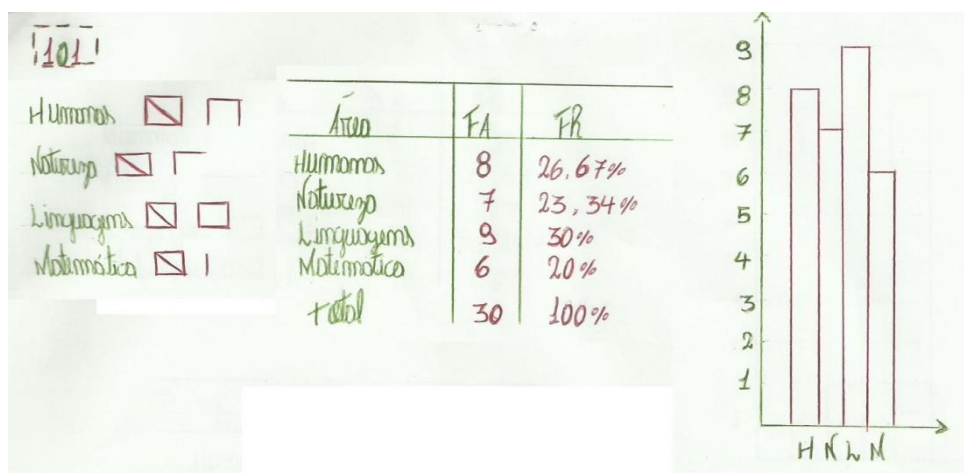 101
Humanas
Natureza
Linguagens
Matemática
Área FA FR
Humanas 8 26,67%
Natureza 7 23,34%
Linguagens 9 30%
Matemática 6 20%
total 30 100%
9
8
7
6
5
4
3
2
1
H N L M